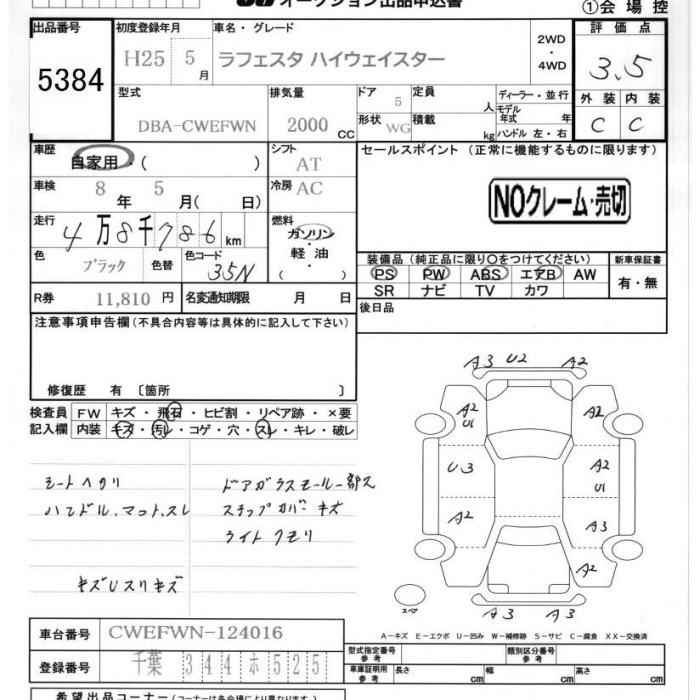 オークション出品申込書
①会場控
出品番号 初度登録年月 車名・グレード 評価点
5384 H25 5月 ラフェスタ ハイウェイスター 2WD・4WD 3.5
型式 排気量 ドア 5 定員 人 ディーラー・並行 外装 内装
DBA-CWEFWN 2000 CC 形状 WG 積載 kg モデル年式 年 ハンドル 左・右 C C
車歴 自家用・( ) シフト AT セールスポイント (正常に機能するものに限ります)
車検 8年 5月( 日) 冷房 AC
NOクレーム・売切
走行 4万8千786km 燃料 ガソリン
軽・油
( )
色 ブラック 色替 色コード 35N
装備品 (純正品に限り○をつけてください) 新車保証書
PS PW ABS エアB AW 有・無
SR ナビ TV カワ
R券 11,810円 名変通知期限 月 日 後日品
注意事項申告欄 (不具合内容等は具体的に記入して下さい)
修復歴 有 〔箇所 〕
検査員 FW キズ・飛石・ヒビ割・リペア跡・×要
記入欄 内装 キズ・汚レ・コゲ・穴・スレ・キレ・破レ
シートヘタリ
ハンドル.マット.スレ
キズUスリキズ
ドアガラスモール一部欠
ステップカバーキズ
ライトクモリ
A3 U2 A2
A2 U1 A2
U3 A2 U1
A2 A3
A2
A3 A3
スペア
A-キズ E-エクボ U-凹み W-補修跡 S-サビ C-腐食 XX-交換済
車台番号 CWEFWN-124016
登録番号 千葉 344 ホ 525
型式指定番号 参考 類別区分番号 参考
車庫証明用 参考 長さ cm 幅 cm 高さ cm
希望出品コーナー (コーナーは各会場により異なります)